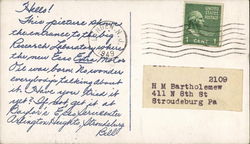 Hello!
This picture shows
the entrance to the big
Research Laboratory where
the new Esso Extra Motor
Oil was born. No wonder
everybody's talking about
it. Have you tried it
yet? If not, get it at
Esso Servicenter
Arlington Heights, Stroudsburg
Bill
N.J.
1949
UNITED STATES POSTAGE
1 CENT 1
2109
H M Bartholemew
411 N 8th St
Stroudeburg Pa